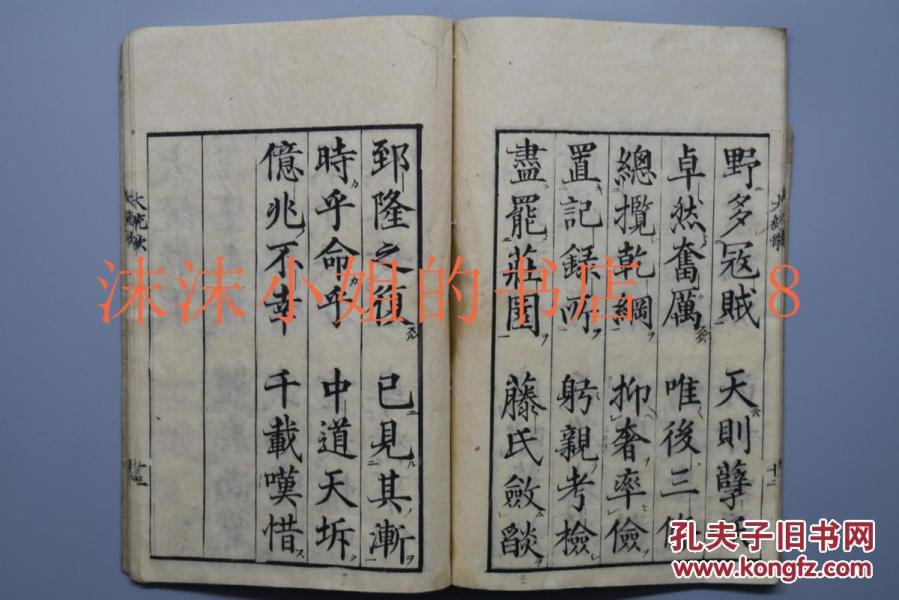 野多寇賊 天則孽
卓然奮厲 唯後三條
總攬乾綱 抑奢率儉
置記録所 躬親考檢
盡罷莊園 藤氏斂燄
郅隆之復 已見其漸
時乎命乎 中道天坼
億兆不幸 千載嘆惜
大統歌
十三
十二
沫沫小姐的书店 8
孔夫子旧书网
www.kongfz.com